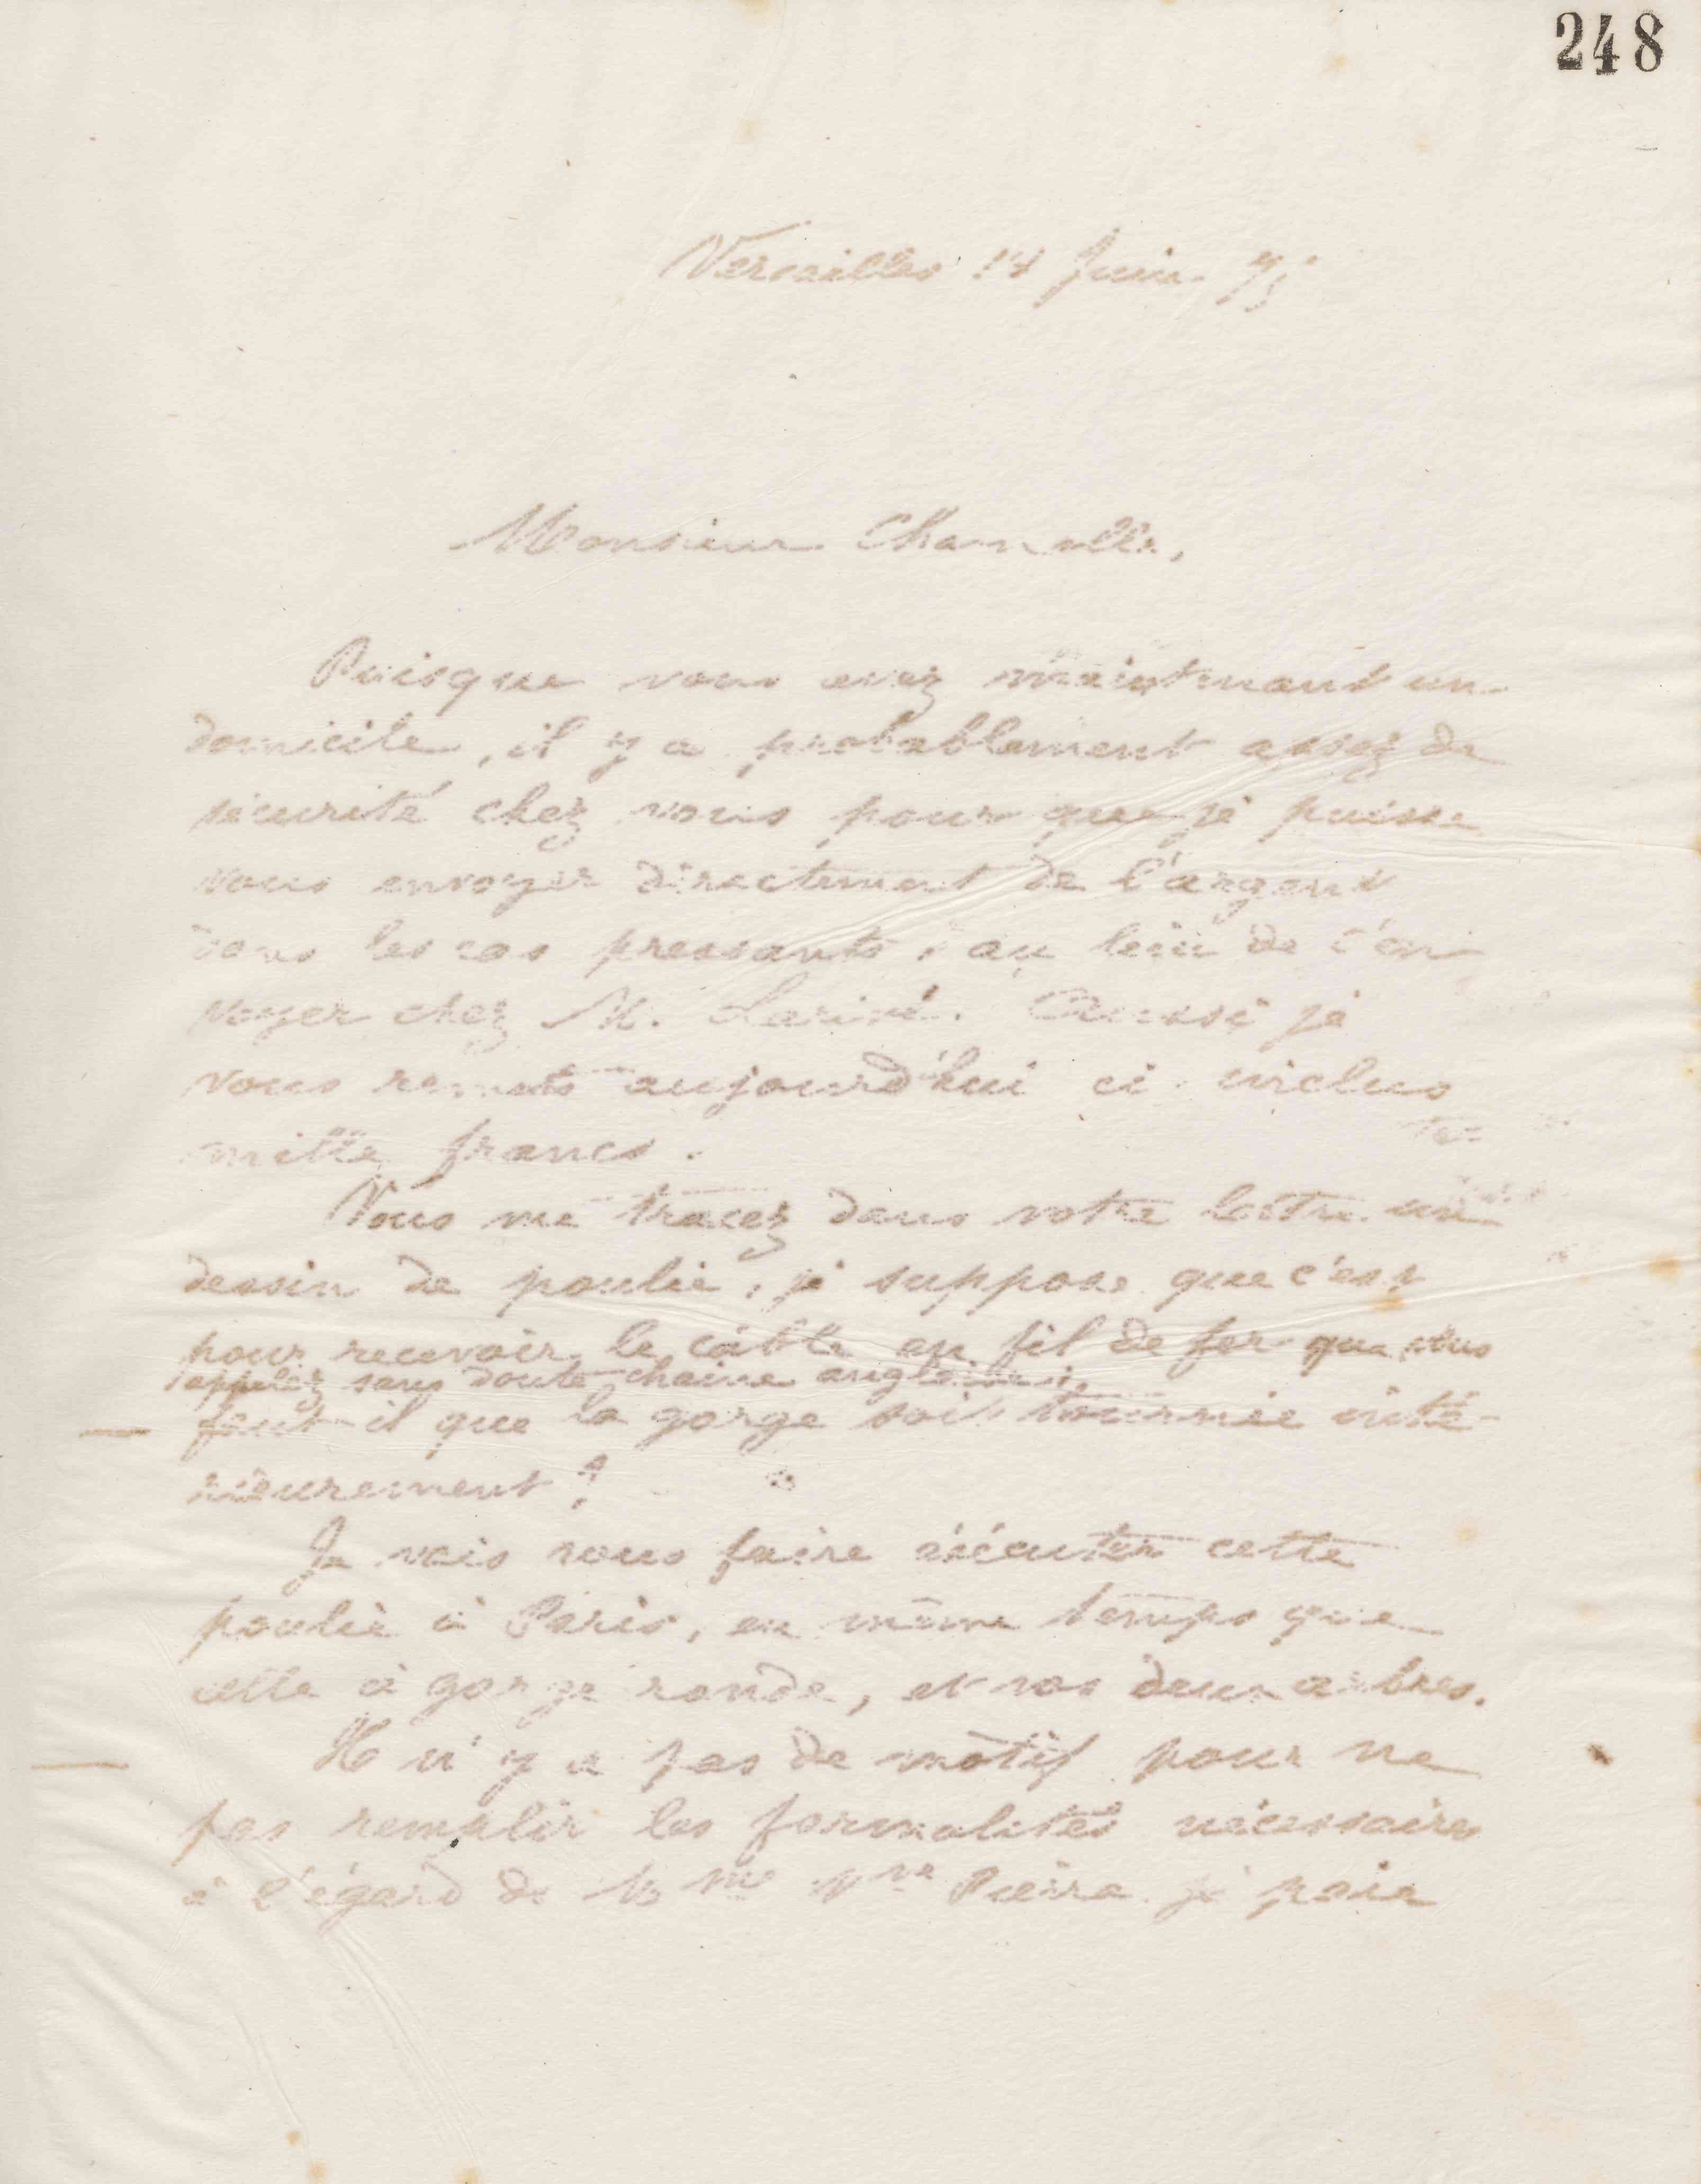 248
Versailles 14 Juin 75
Monsieur
Puisque vous avez maintenant un
domicile, il y a probablement assez de
sécurité chez vous pour que je puisse
vous envoyer directement de l'argent
dans les cas pressants, au lieu de l'en
voyer chez M. Larivé. Aussi je
vous remets aujourd'hui ci inclus
mille francs.
Vous me tracez dans votre lettre un
dessin de poulie, je suppose que c'est
pour recevoir le câble en fil de fer que vous
appelez sans doute chaine anglaise;
faut-il que la gorge soit tournée inté-
rieurement?
Je vais vous faire exécuter cette
poulie à Paris, en même temps que
celle à gorge ronde, et vos deux arbres.
Il n'y a pas de motif pour ne
pas remplir les formalités nécessaires
à l'égard de Mme Vve je paie